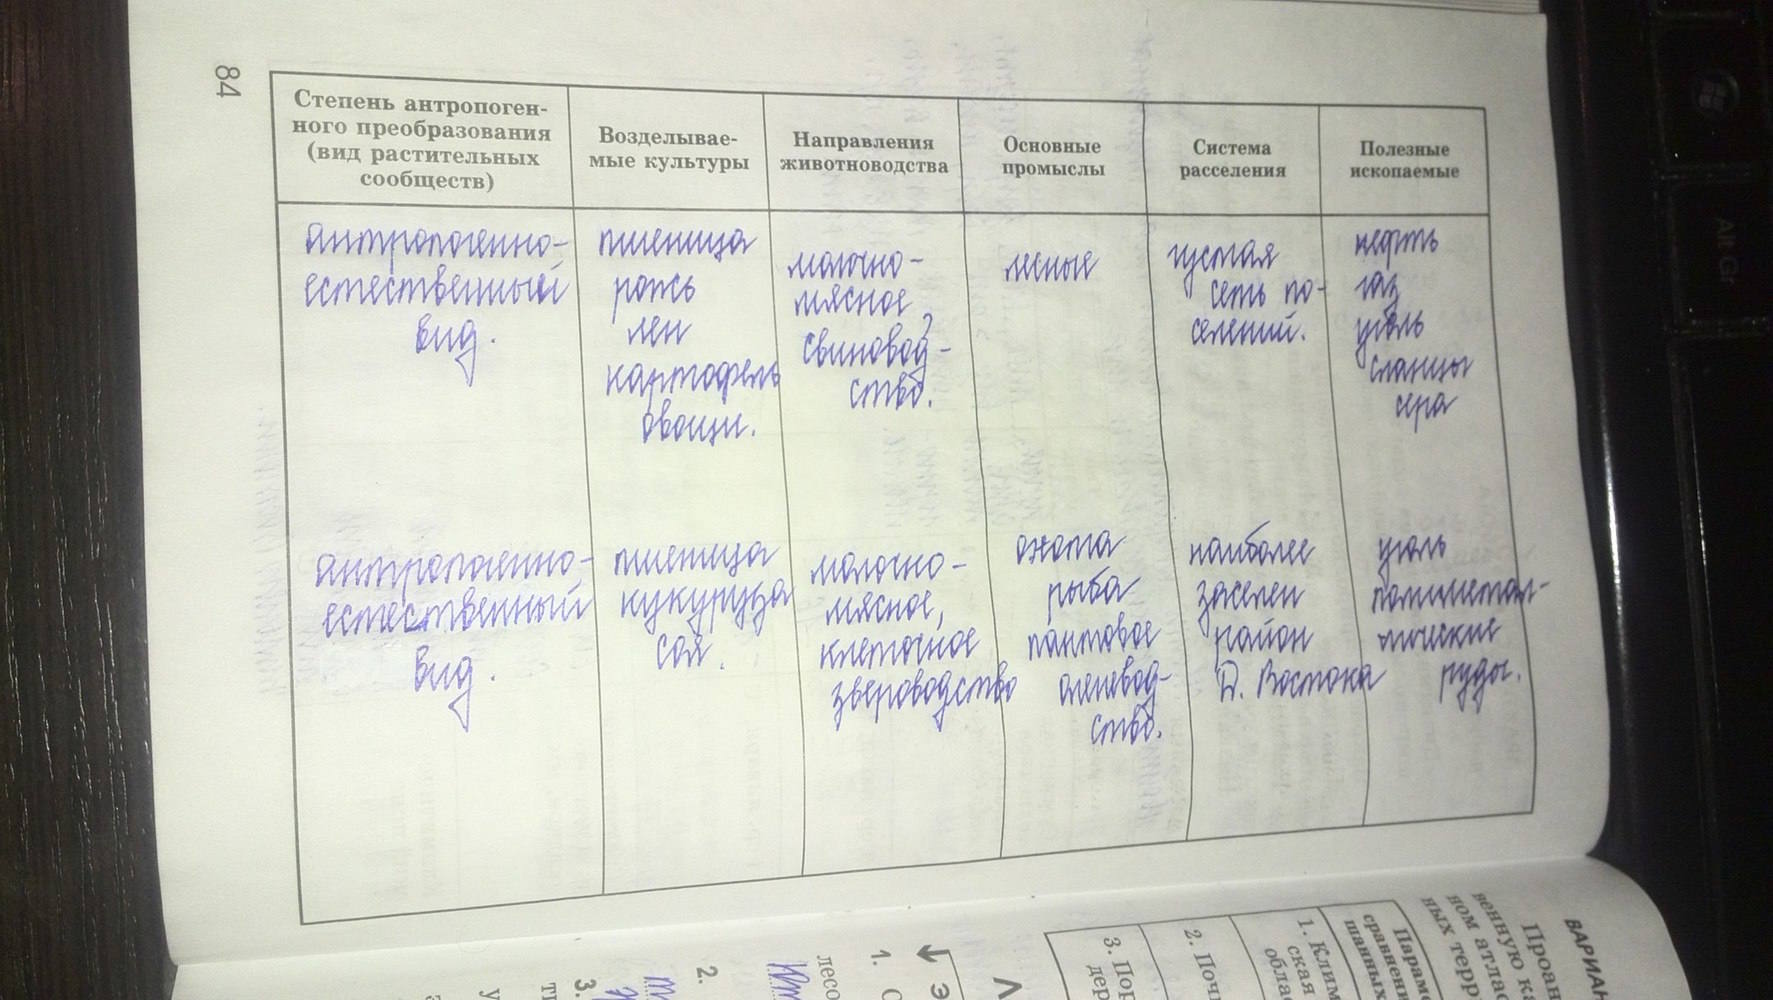 84
Степень антропоген-
ного преобразования
(вид растительных
сообществ)
Возделывае-
мые культуры
Направления
животноводства
Основные
промыслы
Система
расселения
Полезные
ископаемые
антропогенно-
естественный
вид.
пшеница
рожь
лен
картофель
овощи.
молочно-
мясное,
свиновод-
ство.
лесные
густая
сеть по-
селений.
нефть
газ
уголь
сланцы
сера
антропогенно-
естественный
вид.
пшеница
кукуруза
соя.
молочно-
мясное,
клеточное
звероводство
охота
рыба
пантовое
оленевод-
ство.
наиболее
заселен
район
Д. Востока
уголь
полиметал-
лические
руды.
ВАРИАН
Проана
венную ка
ном атлас
ных терр
Парам
сравнени
шанных
1. Клим
ская
облас
2. Почв
3. Пор
дер
1.
лесо
2.
3.